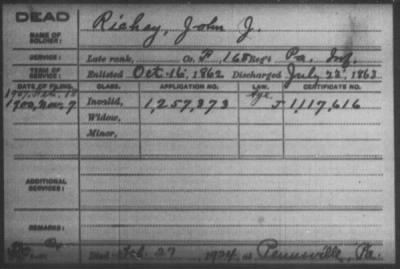 DEAD
NAME OF SOLDIER: Richey, John J.
SERVICE: Late rank, Co. F, 168 Reg't Pa. Inf.
TERM OF SERVICE: Enlisted Oct. 16, 1862 Discharged July 22, 1863
DATE OF FILING. CLASS. APPLICATION NO. LAW. CERTIFICATE NO.
Age
1900, Nov. 7 Invalid, 1,257,873 1,117,616
Widow,
Minor,
ADDITIONAL SERVICES:
REMARKS:
Died Feb. 27, 1924, at Pennsville, Pa.